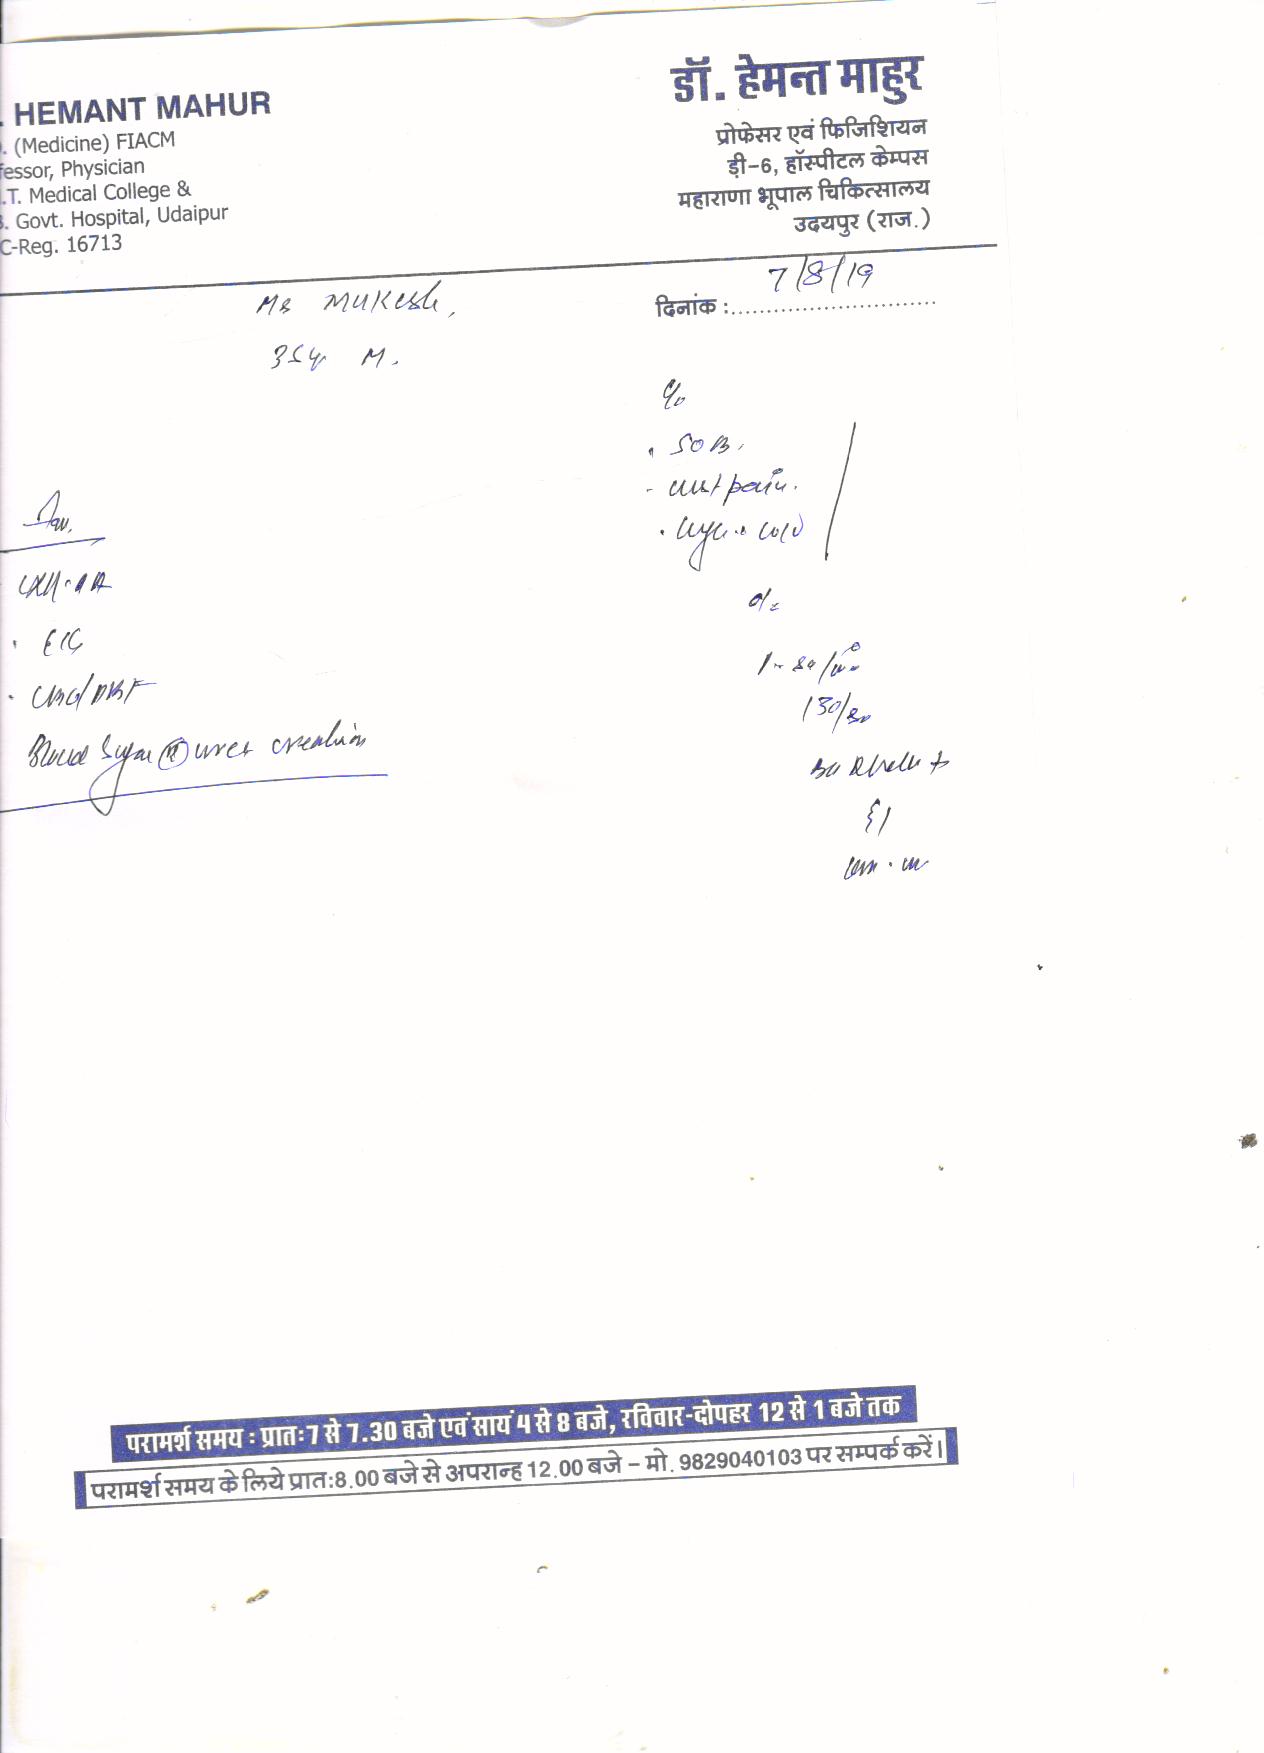 . HEMANT MAHUR
. (Medicine) FIACM
fessor, Physician
.T. Medical College &
. Govt. Hospital, Udaipur
C-Reg. 16713
डॉ. हेमन्त माहुर
प्रोफेसर एवं फिजिशियन
डी-6, हॉस्पीटल केम्पस
महाराणा भूपाल चिकित्सालय
उदयपुर (राज.)
दिनांक : 7/8/19
Mr Mukesh,
35y M.
c/o
• SOB.
- chest pain.
cold
o/e
130/80
• ECG
Blood Sugar (R) urea creatinin
परामर्श समय : प्रातः 7 से 7.30 बजे एवं सायं 4 से 8 बजे, रविवार-दोपहर 12 से 1 बजे तक
परामर्श समय के लिये प्रात:8.00 बजे से अपरान्ह 12.00 बजे – मो. 9829040103 पर सम्पर्क करें।